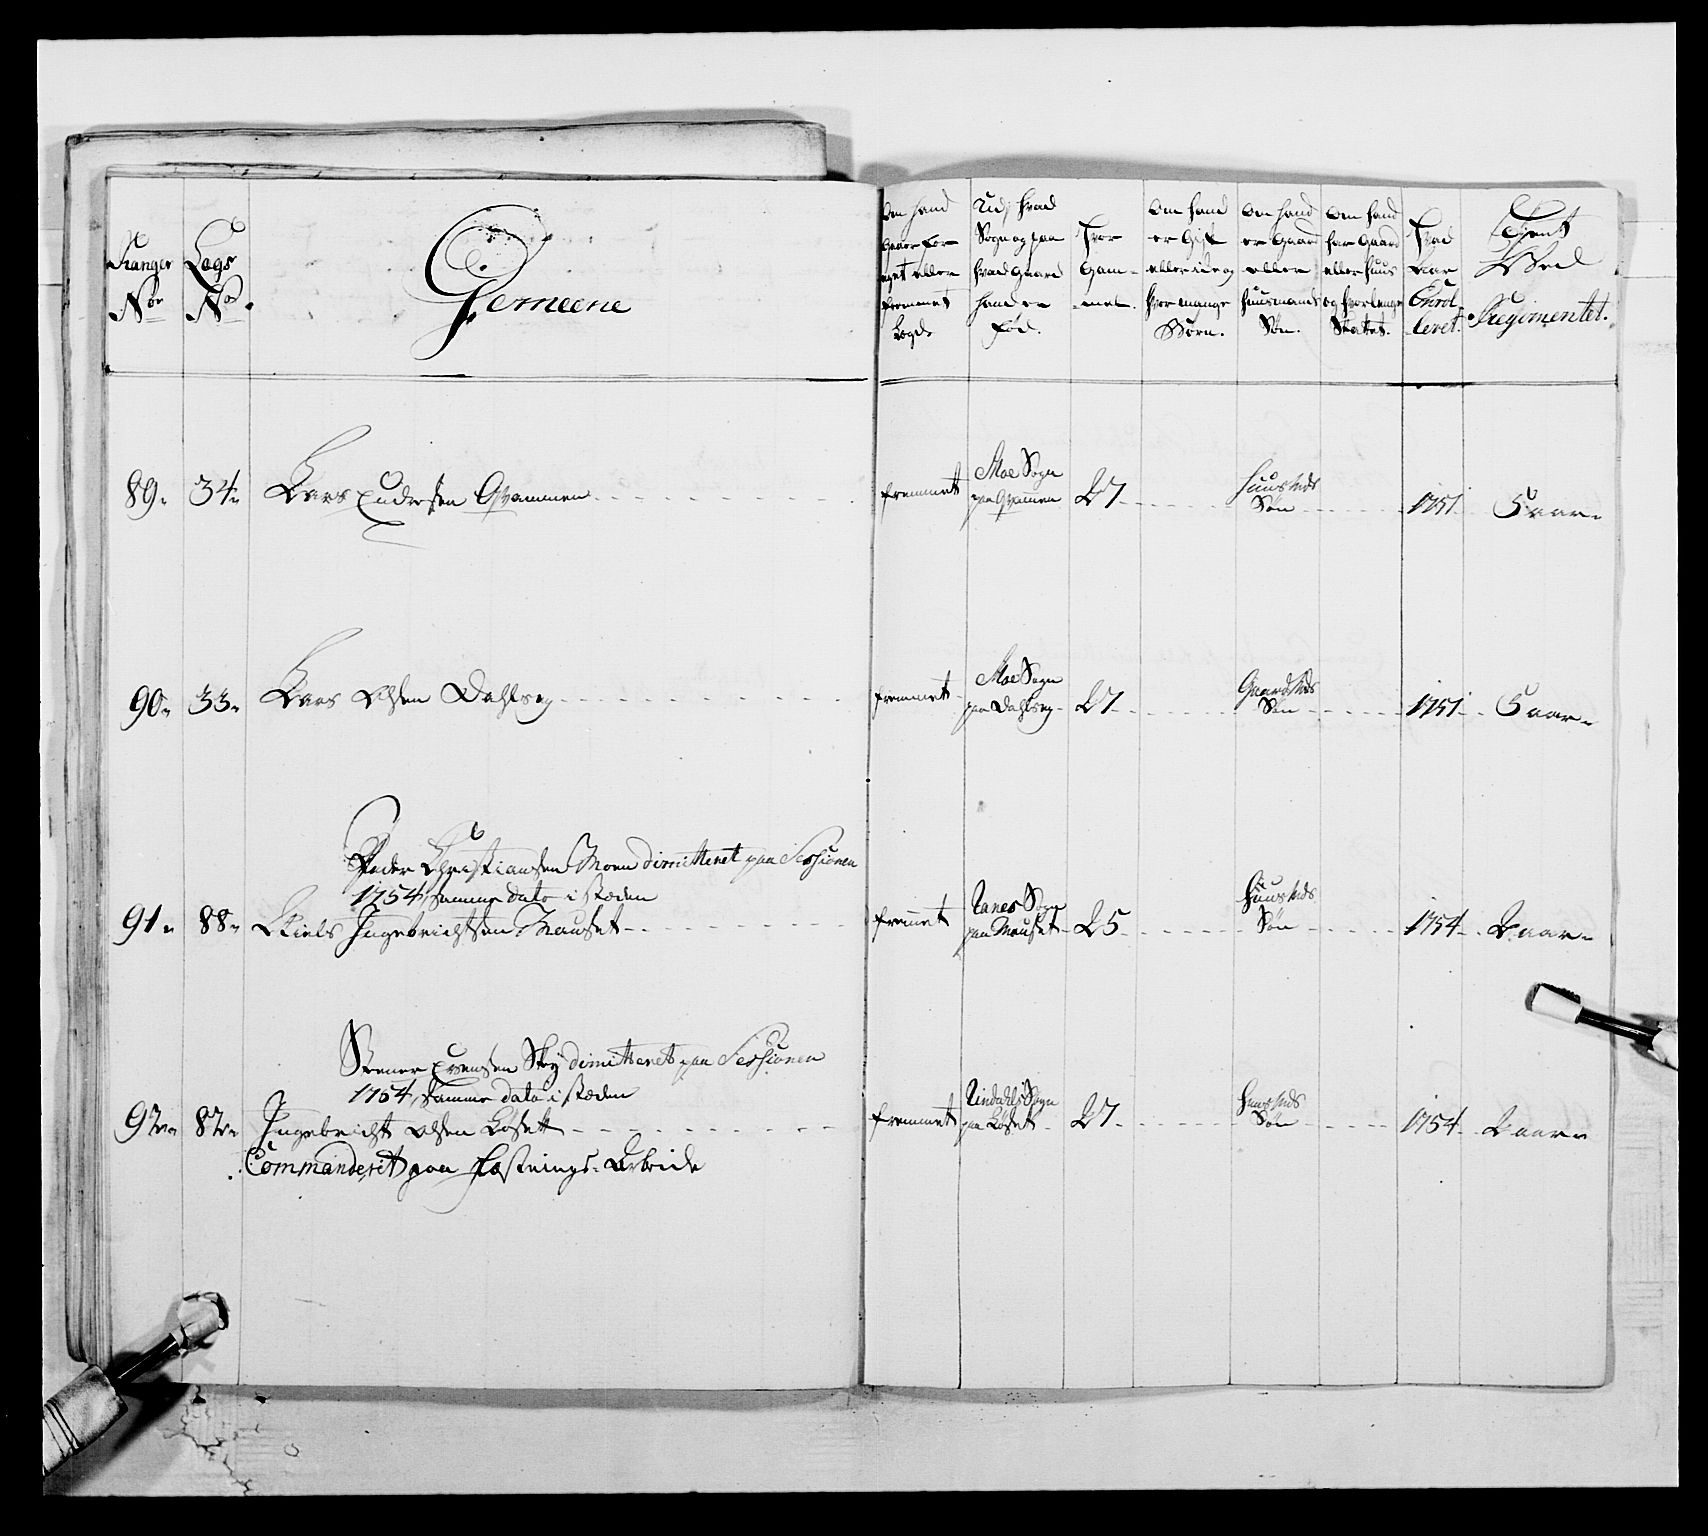 Ranger
No
Lægs
No
Gemeene
Om hand
gaaer for
eget eller
fremmet
Lægd.
Ud j hvad
Sogn og paa
hvad Gaard
hand er
fød.
Hvor
Gam-
mel.
Om hand
er Gift
eller ide og
hvor mange
Børn.
Om hand
er Gaard
eller
Huusmands
Søn.
Om hand
har Gaard
eller Huus
og hvorlenge
Skatet.
Hvad
Aar
Enrol-
leret.
Tient
Wed
Regimentet.
89. 34. Lars Andersen Qvammen
fremmet Moe Sogn
paa Qvammen 27 Huusmds
Søn 1751 5 aar
90. 33. Lars Olsen Dahlseg
fremmet Moe Sogn
paa Dahlseg 27 Gaardmds
Søn 1751 5 aar
Peder Christiansen Moen dimitteret paa Sessionen
1754, samme dato i stæden
91. 88. Niels Ingebrichtsen Mauset
fremmet Ranes Sogn
paa Mauset 25 Huusmds
Søn 1754 2 aar
Steener Arensen Skej dimitteret paa Sessionen
1754, samme dato i stæden
92. 82. Ingebricht Olsen Løset
Commanderet paa Fæstnings-Arbeide
fremmet Rindahls Sogn
paa Løset 27 Huusmds
Søn 1754 2 aar